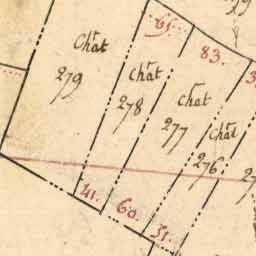 Chat
279
Chat
278
Chat
277
Chat
276
83.
41.
60.
31.